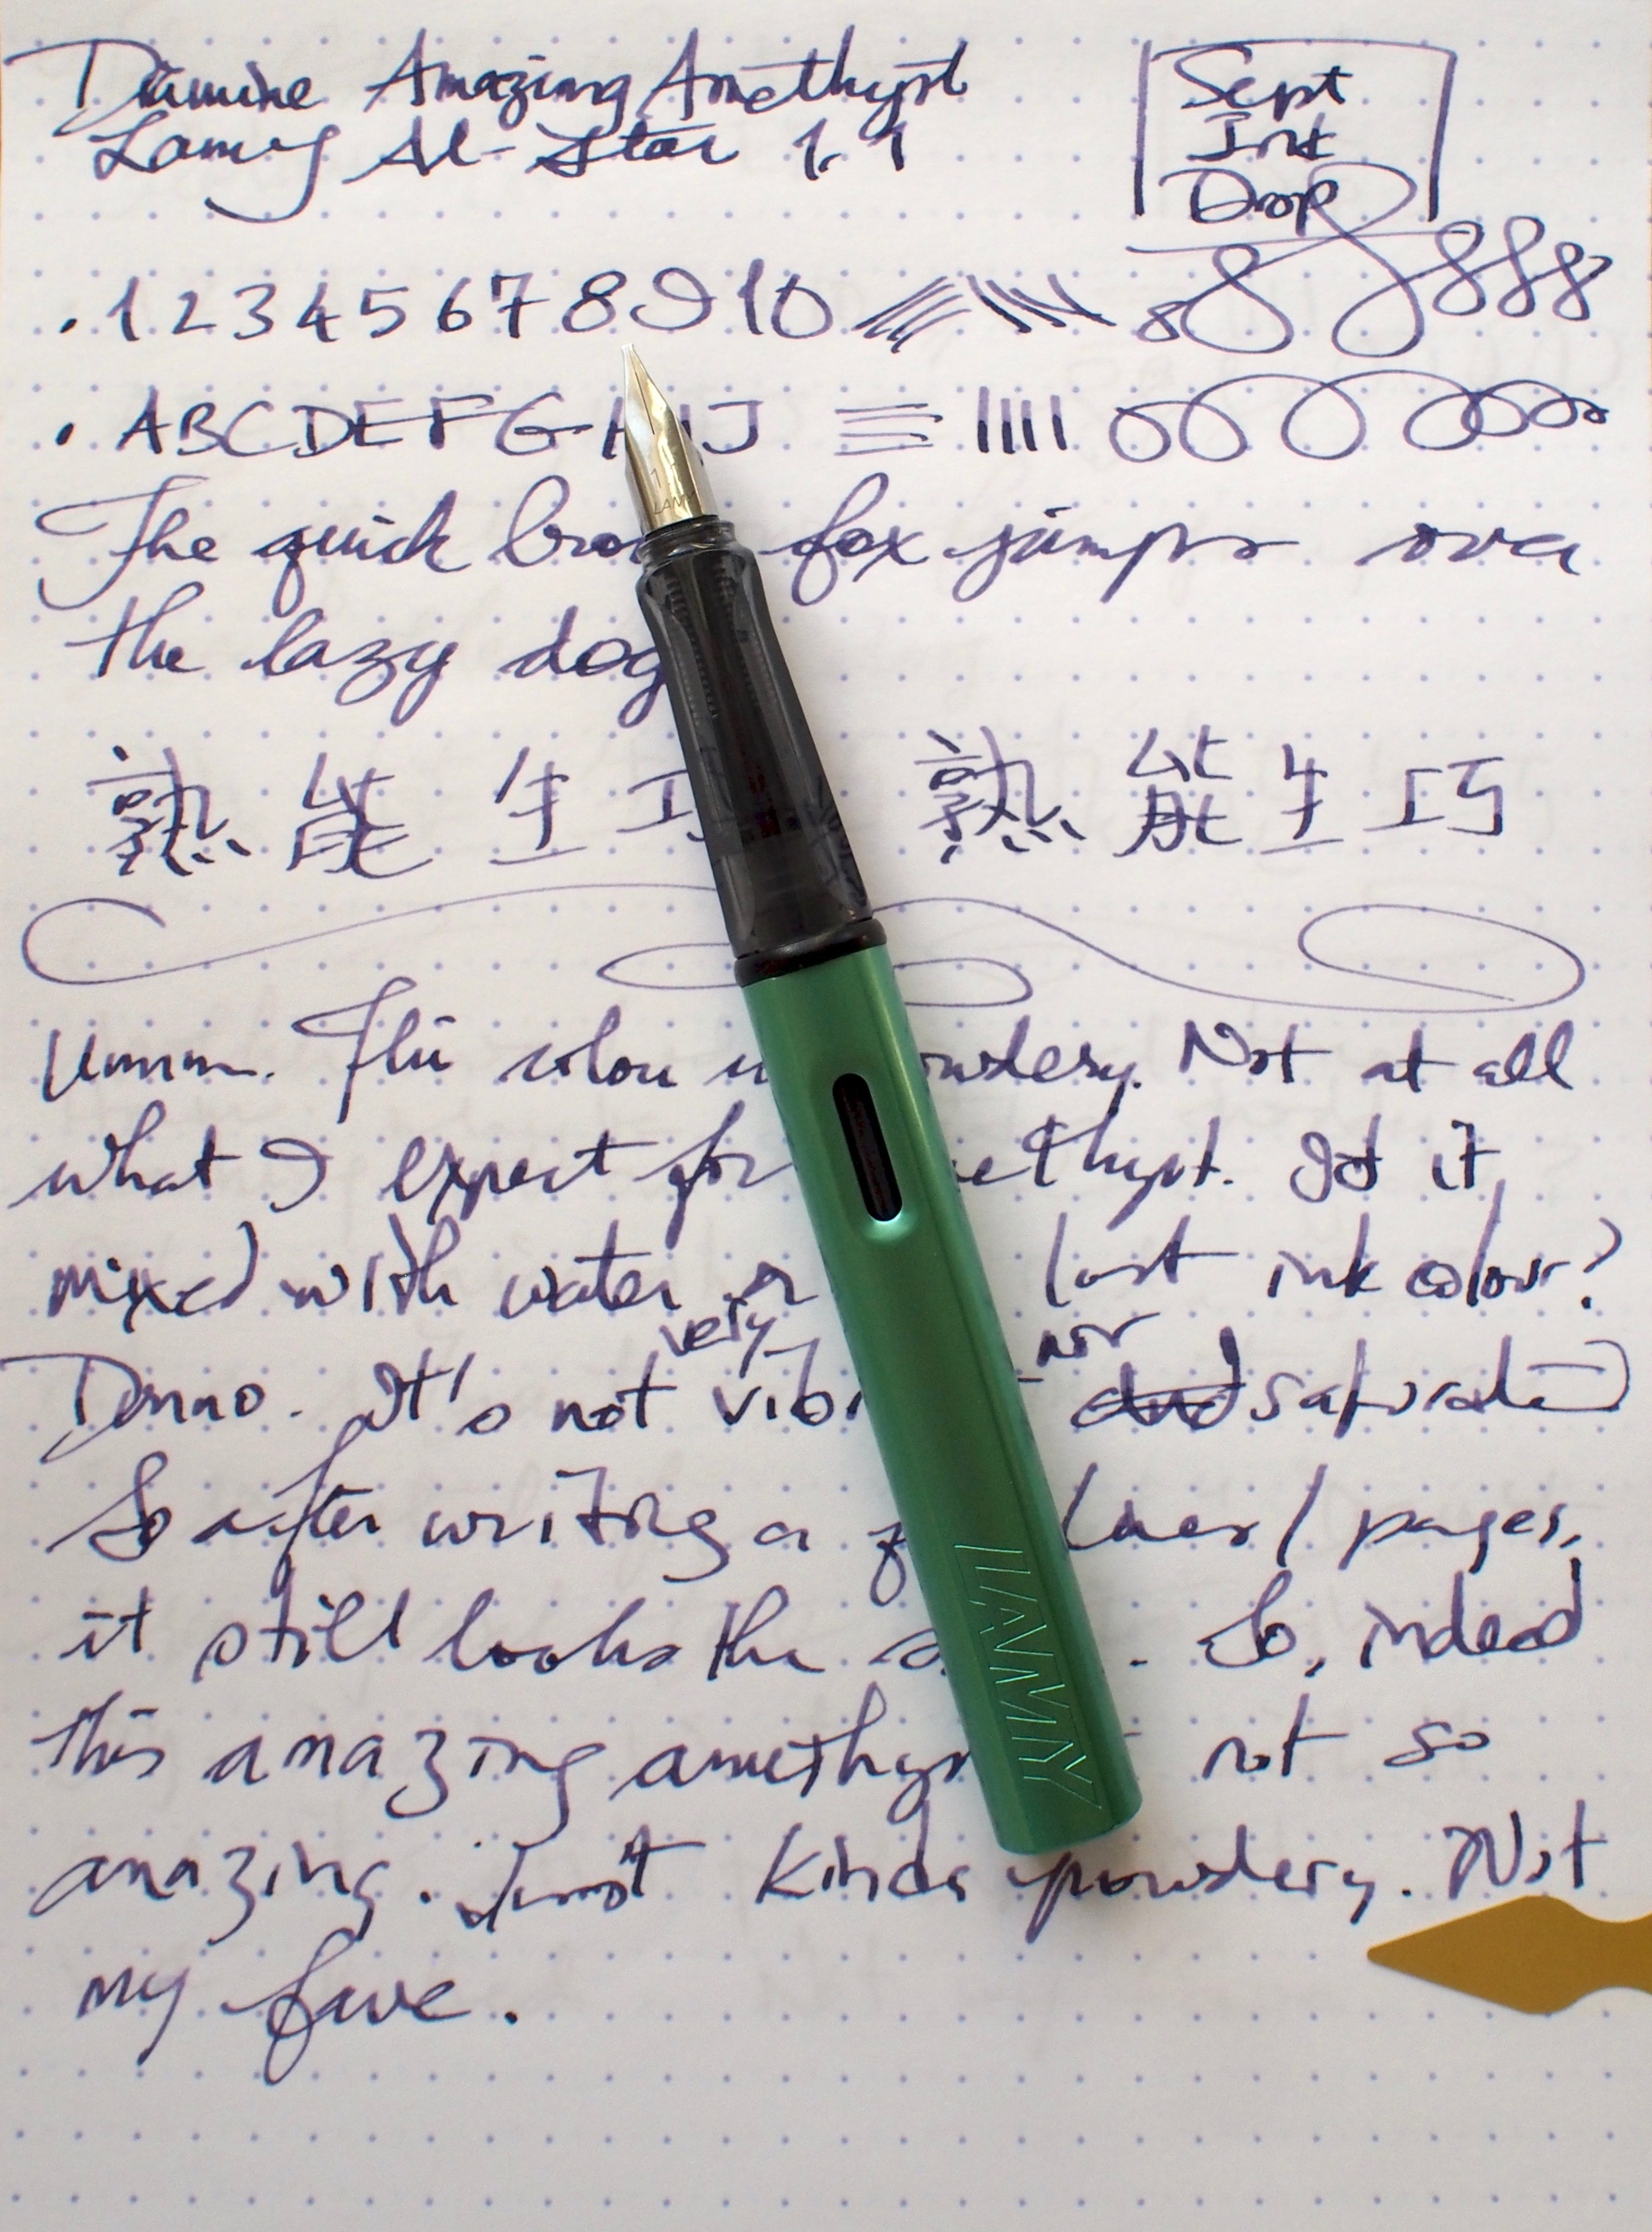 Diamine Amazing Amethyst
Lamy Al-Star 1.1
Sept
Ink
Drop
. 1 2 3 4 5 6 7 8 9 10 8 8 8 8 8 8
. A B C D E F G H J
The quick fox jumps over
the lazy dog
熟能生巧 熟能生巧
Umm. This colour is powdery. Not at all
what I expect for amethyst. Is it
mixed with water or last ink colour?
very nor
Dunno. It's not and saturated
So after writing a lines/pages,
it still looks the . So, indeed
this amazing amethyst not so
amazing. Kinda powdery. Not
my fave.
1.1
LAMY
LAMY